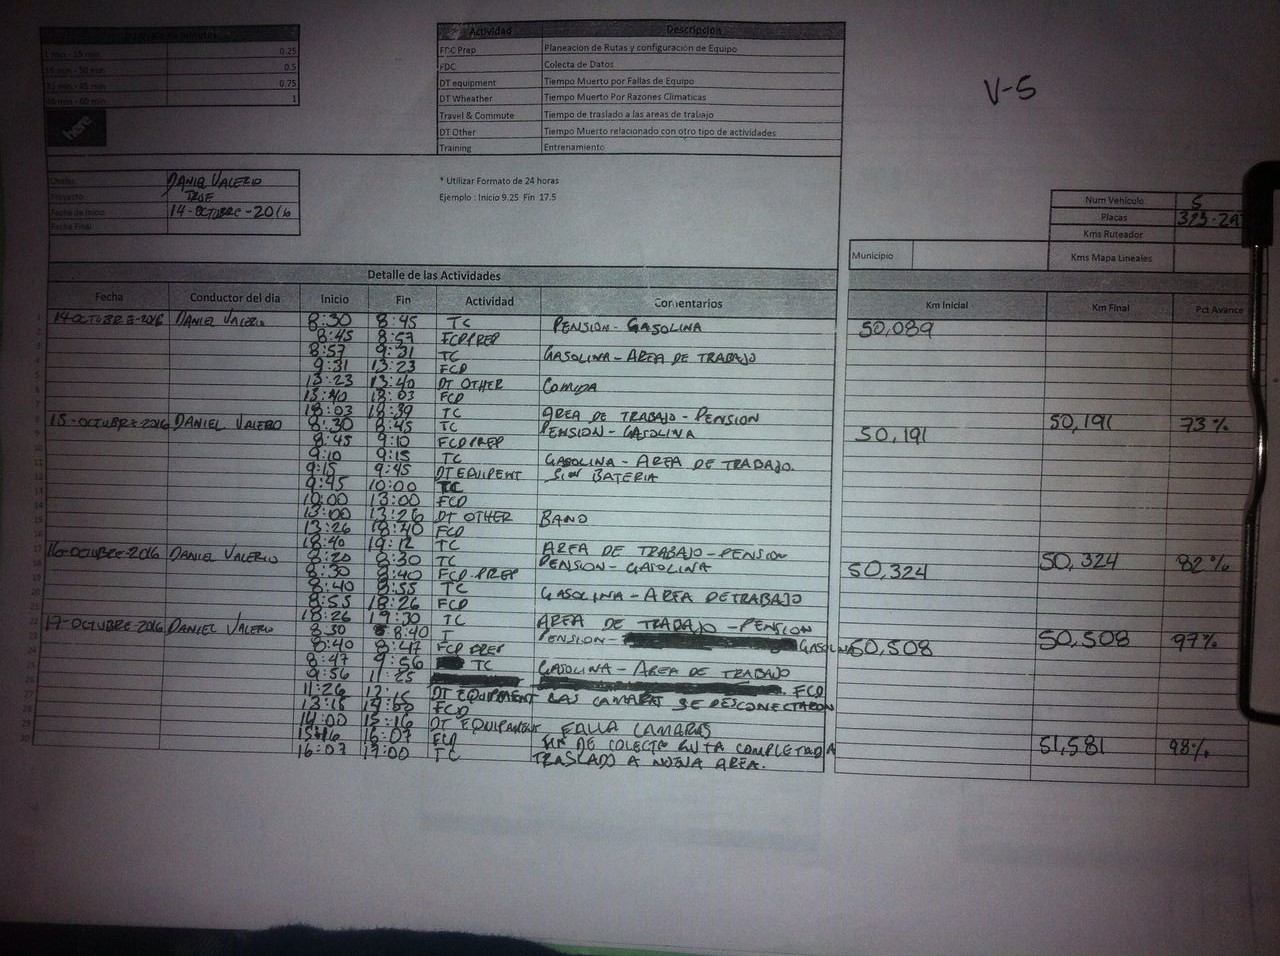 Actividad Descripcion
1 min - 15 min 0.25
FDC Prep Planeacion de Rutas y configuración de Equipo
0.5
FDC Colecta de Datos
0.75
DT equipment Tiempo Muerto por Fallas de Equipo
1
DT Wheather Tiempo Muerto Por Razones Climaticas
Travel & Commute Tiempo de traslado a las areas de trabajo
DT Other Tiempo Muerto relacionado con otro tipo de actividades
Training Entrenamiento
here
V-5
DANIEL VALERIO
Proyecto TRUE
Fecha de Inicio 14-OCTUBRE-2016
Fecha Final
* Utilizar Formato de 24 horas
Ejemplo : Inicio 9.25 Fin 17.5
Num Vehículo 5
Placas
Kms Ruteador
Municipio Kms Mapa Lineales
Detalle de las Actividades
Fecha Conductor del dia Inicio Fin Actividad Comentarios Km Inicial Km Final Pct Avance
14-OCTUBRE-2016 DANIEL VALERIO 8:30 8:45 TC PENSION-GASOLINA 50,089
8:45 8:57 FCP PREP
8:57 9:31 TC GASOLINA-AREA DE TRABAJO
9:31 13:23 FCD
13:23 13:40 DT OTHER COMIDA
13:40 18:03 FCD
18:03 18:39 TC AREA DE TRABAJO-PENSION 50,191 73%
15-OCTUBRE-2016 DANIEL VALERIO 8:30 8:45 TC PENSION-GASOLINA 50,191
8:45 9:10 FCP PREP
9:10 9:15 TC GASOLINA-AREA DE TRABAJO.
9:15 9:45 DT EQUIPENT SIN BATERIA
9:45 10:00 TC
10:00 13:00 FCD
13:00 13:26 DT OTHER BANO
13:26 18:40 FCD
18:40 19:12 TC AREA DE TRABAJO-PENSION 50,324 82%
16-OCUBRE-2016 DANIEL VALERIO 8:20 8:30 TC PENSION-GASOLINA 50,324
8:30 8:40 FCD-PREP
8:40 8:55 TC GASOLINA-AREA DE TRABAJO
8:55 18:26 FCD
18:26 19:30 TC AREA DE TRABAJO-PENSION 50,508 97%
17-OCTUBRE-2016 DANIEL VALERIO 8:30 8:40 T PENSION- GASOLINA 50,508
8:40 8:47 FCD PREP
8:47 9:56 TC GASOLINA-AREA DE TRABAJO
9:56 11:25 FCD
11:26 DT EQUIPMENT LAS CAMARAS SE DESCONECTARON
13:15 14:00 FCD
14:00 15:16 DT EQUIPAMENT FALLA CAMARAS
15:16 16:07 FCD FIN DE COLECTA RUTA COMPLETADA 51,581 98%
16:07 17:00 TC TRASLADO A NUEVA AREA.